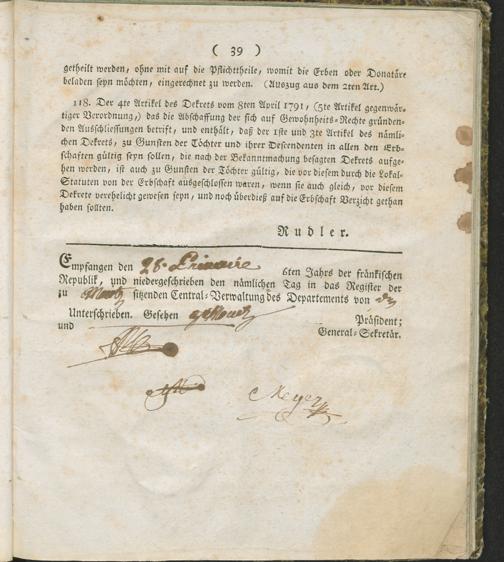 ( 39 )
getheilt werden, ohne mit auf die Pflichttheile, womit die Erben oder Donatäre
beladen seyn möchten, eingerechnet zu werden. (Auszug aus dem 2ten Art.)
118. Der 4te Artikel des Dekrets vom 8ten April 1791, (5te Artikel gegenwär-
tiger Verordnung,) das die Abschaffung der sich auf Gewohnheits-Rechte gründen-
den Ausschliessungen betrift, und enthält, daß der 1ste und 3te Artikel des nämli-
chen Dekrets, zu Gunsten der Töchter und ihrer Descendenten in allen den Erb-
schaften gültig seyn sollen, die nach der Bekanntmachung besagten Dekrets aufge-
hen werden, ist auch zu Gunsten der Töchter gültig, die vor diesem durch die Lokal-
Statuten von der Erbschaft ausgeschlossen waren, wenn sie auch gleich, vor diesem
Dekrete verehelicht gewesen seyn, und noch überdieß auf die Erbschaft Verzicht gethan
haben sollten.
Rudler.
Empfangen den 28 Frimaire 6ten Jahrs der fränkischen
Republik, und niedergeschrieben den nämlichen Tag in das Register der
zu sitzenden Central-Verwaltung des Departements von
Unterschrieben. Gesehen Präsident;
und General-Sekretär.
Meyer